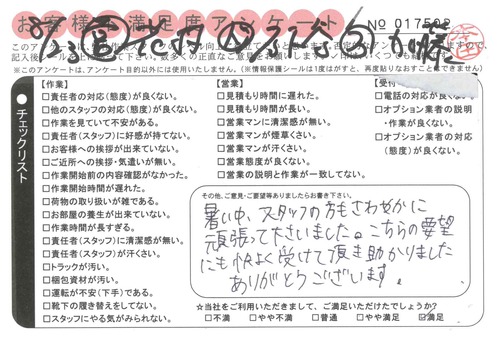 お客様不満足度アンケート No 017502
※このアンケートは、アンケート目的以外には使用いたしません。(※情報保護シールは1度はがすと、再度貼りなおすことはできません)
チェックリスト
【作業】
□責任者の対応(態度)が良くない。
□他のスタッフの対応(態度)が良くない。
□作業を見ていて不安がある。
□責任者(スタッフ)に好感が持てない。
□お客様への挨拶が出来ていない。
□ご近所への挨拶・気遣いが無い。
□作業開始前の内容確認がなかった。
□作業開始時間が遅れた。
□荷物の取り扱いが雑である。
□お部屋の養生が出来ていない。
□作業時間が長すぎる。
□責任者(スタッフ)に清潔感が無い。
□責任者(スタッフ)が汗くさい。
□トラックが汚い。
□梱包資材が汚い。
□運転が不安(下手)である。
□靴下の履き替えをしてない。
□スタッフにやる気がみられない。
【営業】
□見積もり時間に遅れた。
□見積もり時間が長い。
□営業マンに清潔感が無い。
□営業マンが煙草くさい。
□営業マンが汗くさい。
□営業態度が良くない。
□営業の説明と作業が一致してない。
【受付
□電話の対応が良くない
□オプション業者の説明
・作業が良くない。
□オプション業者の対応
(態度)が良くない。
その他、ご意見・ご要望等ありましたらお書き下さい。
暑い中、スタッフの方もさわやかに
頑張って下さいました。こちらの要望
にも快よく受けて頂き助かりました
ありがとうございます。
☆当社をご利用いただきまして、ご満足いただけたでしょうか?
□不満 □やや不満 □普通 □やや満足 ☑満足